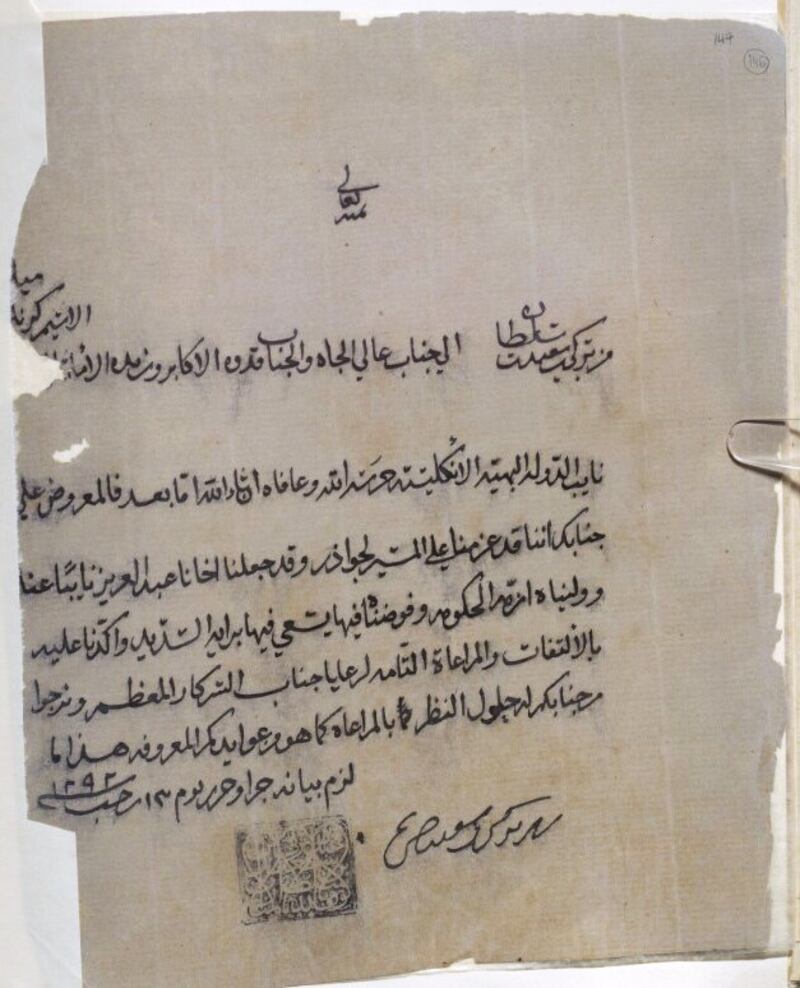 147
146
لله تعالى
من تركي بن سعيد بن سلطان الى جناب عالي الجاه والجناب قدوه الاكابر وزبده
نايب الدوله البهيه الأنكليسيه حرسه الله وعافاه ان شاء الله اما بعد فالمعروض على
جنابكم اننا قد عزمنا على المسير لجواذر وقد جعلنا اخانا عبد العزيز نايبًا عنا
ووليناه امر الحكومه وفوضناه فيها يسعي فيها برايه السديد واكدنا عليه
بالألتفات والمراعاة التامه لرعايا جناب السركار المعظم ونرجوا
من جنابكم له حلول النظر بالمراعاة كما هو من عوايدكم المعروفه هذا ما
لزم بيانه جرا وحرر يوم ١٣ رجب سنة ١٢٩٢